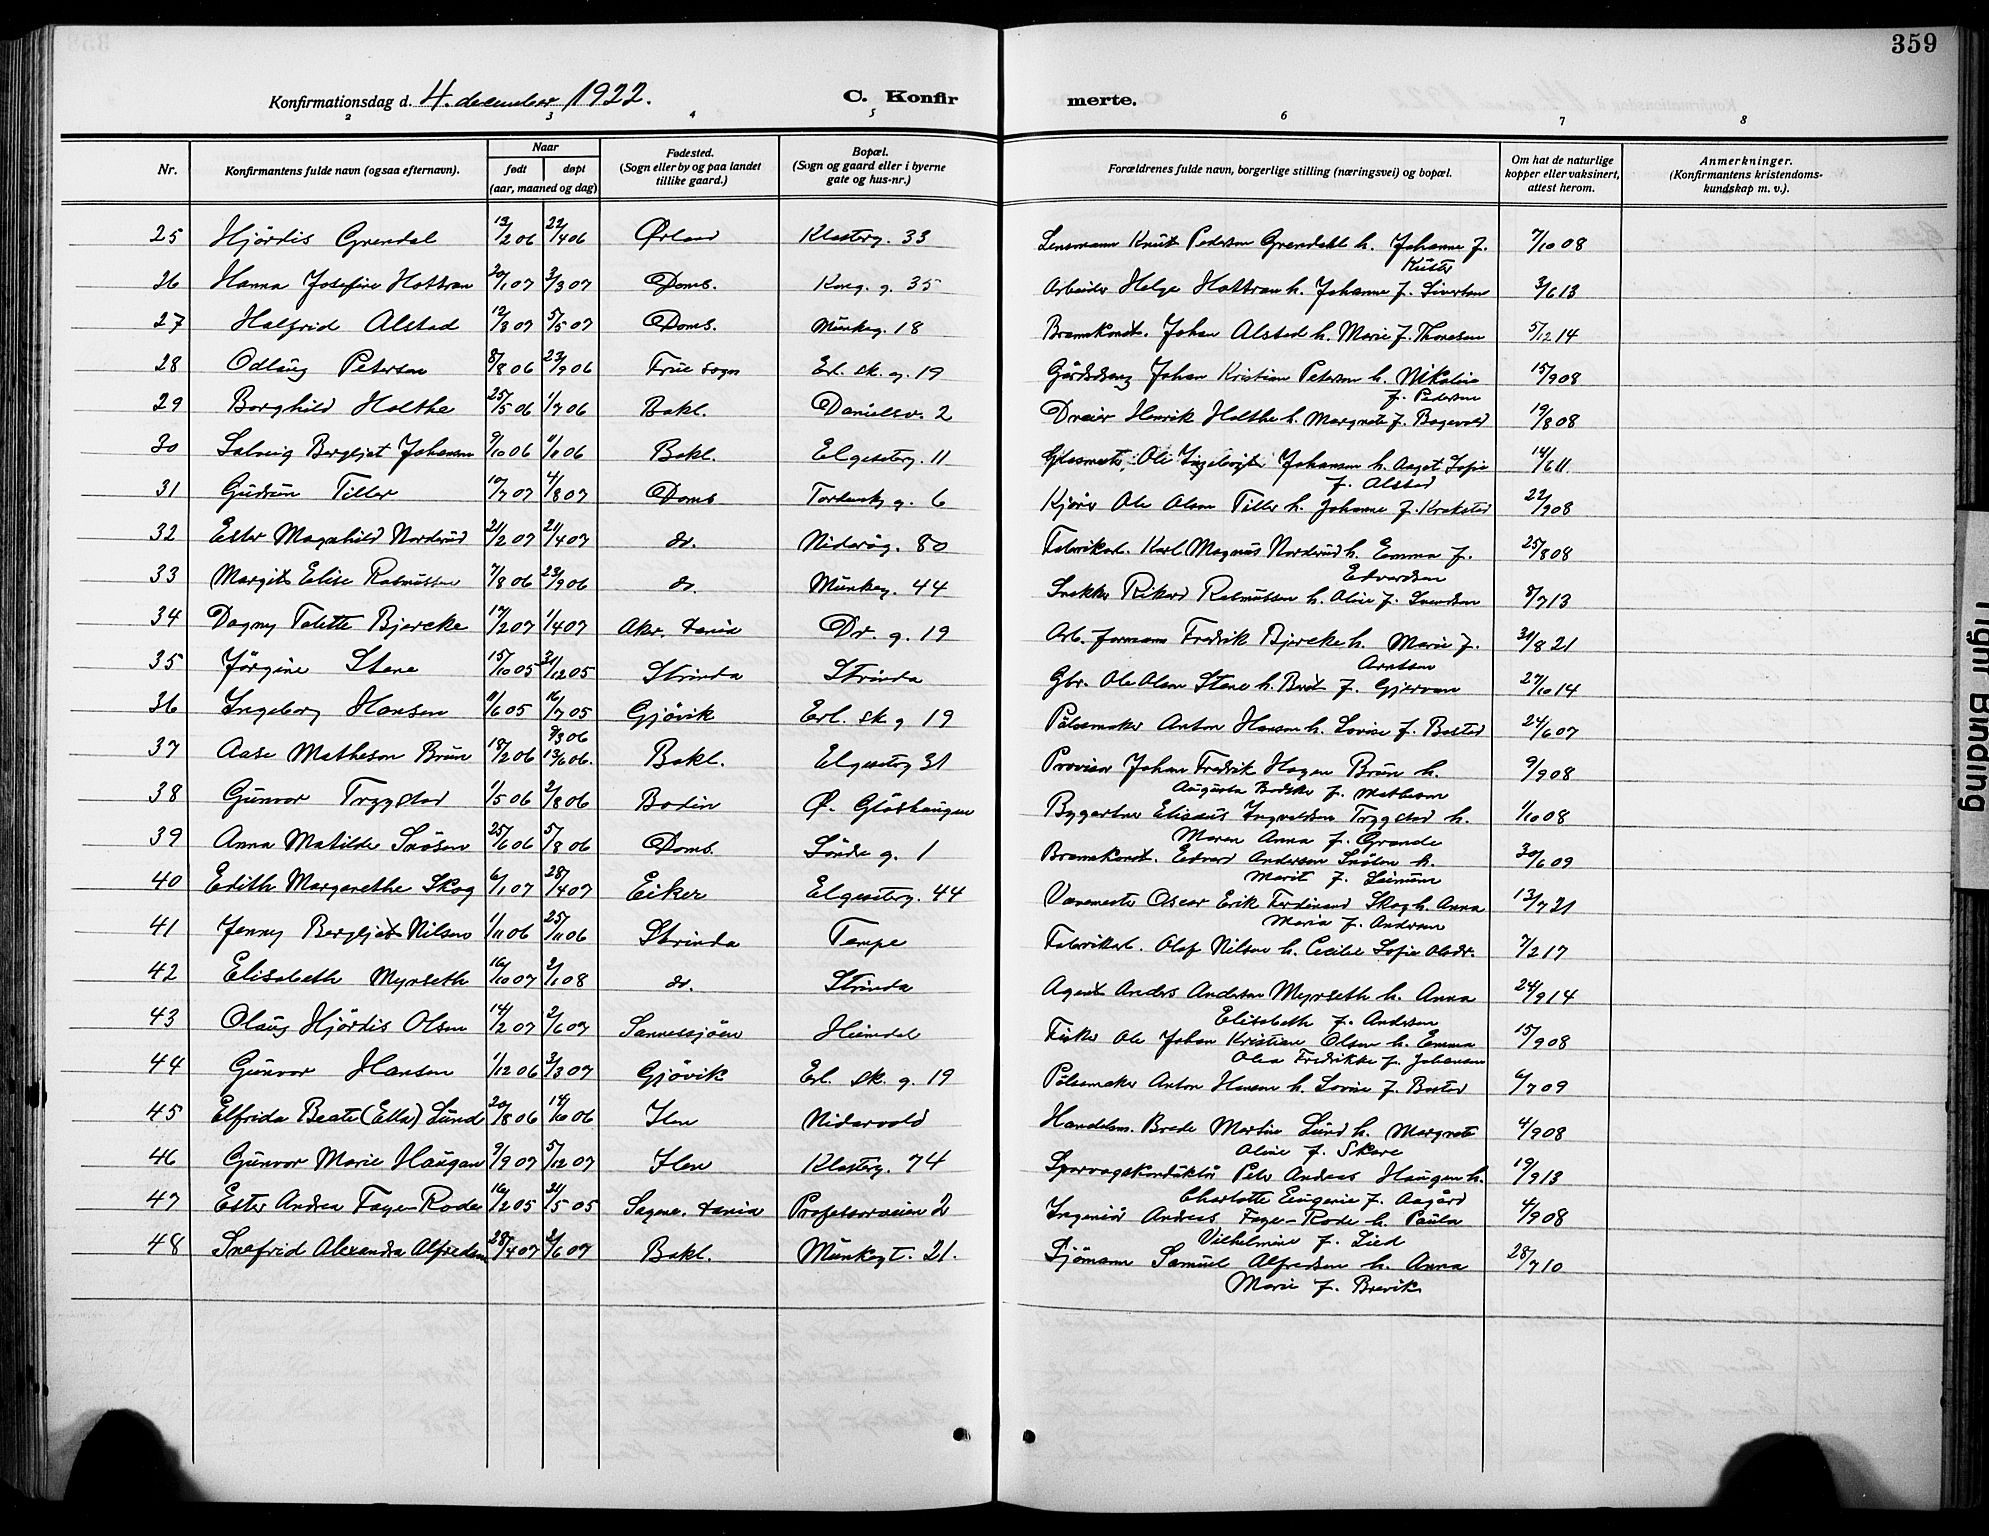 359
Konfirmationsdag d. 4. december 1922.
C. Konfirmerte.
2 3 4 5 6 7 8
Nr.
Konfirmantens fulde navn (ogsaa efternavn).
Naar født døpt (aar, maaned og dag)
Fødested. (Sogn eller by og paa landet tillike gaard.)
Bopæl. (Sogn og gaard eller i byerne gate og hus-nr.)
Forældrenes fulde navn, borgerlige stilling (næringsvei) og bopæl.
Om hat de naturlige kopper eller vaksinert, attest herom.
Anmerkninger. (Konfirmantens kristendomskundskap m. v.).
25 Hjördis Grendal 13/2 06 22/4 06 Ørland Klosterg. 33 Lensmann Knut Pedersen Grendahl h. Johanne f. Küster 7/10 08
26 Hanna Josefine Hottran 20/1 07 3/3 07 Doms. Kong. g. 35 Arbeider Helge Hottran h. Johanne f. Sivertsen 3/6 13
27 Halfrid Alstad 12/3 07 5/5 07 Doms. Munkeg. 18 Brannkonst. Johan Alstad h. Marie f. Thonesen 5/12 14
28 Odlaug Petersen 8/8 06 23/9 06 Frue sogn Erl. sk. g. 19 Johan Kristian Petersen h. Nikoline f. Pedersen 15/9 08
29 Borghild Holthe 25/5 06 1/7 06 Bakl. Danielsv. 2 Dreier Henrik Holthe h. Margrete f. Bogevold 19/8 08
30 Solveig Bergljot Johansen 9/10 06 Bakl. Elgeseterg. 11 Glasmester Ole Ingebrigt Johansen h. Aagot Sofie f. Alstad 14/6 11
31 Gudrun Tiller 10/7 07 4/8 07 Doms Tordensk. g. 6 Kjörer Ole Olsen Tiller h. Johanne f. Krokstad 22/9 08
32 Ester Magnhild Norderud 21/2 07 21/4 07 do. Nidarög. 80 Fabrikarb. Karl Magnus Norderud h. Emma f. Edvardsen 25/8 08
33 Margit Elise Rasmussen 7/8 06 23/9 06 do. Munkeg. 44 Snekker Rikard Rasmussen h. Aline f. Svendsen 8/7 13
34 Dagny Tolette Bjercke 17/2 07 1/4 07 Aker. Krania Dr. g. 19 Arb. formann Fredrik Bjercke h. Marie f. Arntsen 31/8 21
35 Jörgine Stene 15/10 05 31/12 05 Strinda Strinda Gbr. Ole Olsen Stene h. Berit f. Gjervan 27/10 14
36 Ingeborg Hansen 11/6 05 16/7 05 Gjövik Erl. sk. g 19 Pölsemaker Anton Hansen h. Lovise f. Bested 24/6 07
37 Aase Matheson Brun 18/2 06 9/3 06 13/6 06. Bakl. Elgeseterg 31 Provisor Johan Fredrik Hagen Brun h. Augusta Bodske f. Matheson 9/9 08
38 Gunvor Trygstad 1/5 06 2/8 06 Bodin Ø. Glöshaugen Bygartner Eliseus Ingvaldsen Trygstad h. Maren Anna f. Grande 1/10 08
39 Anna Matilde Snösen 25/6 06 5/8 06 Doms. Söndre g. 1 Brannkonst. Edvard Andersen Snösen h. Marit f. 30/6 09
40 Edith Margarethe Skog 6/1 07 28/4 07 Eiker Elgeseterg. 44 Vævemester Oscar Erik Ferdinand Skog h. Anna Maria f. Andersen 13/7 21
41 Jenny Bergljot Nilsen 1/11 06 25/11 06 Strinda Tempe Fabrikarb. Olaf Nilsen h. Cecilie Sofie Olsdr. 7/2 17
42 Elisabeth Myrseth 16/10 07 2/1 08 do. Strinda Agent Anders Andersen Myrseth h. Anna Elisabeth f. Andersen 24/9 14
43 Olaug Hjördis Olsen 14/2 07 2/6 07 Sannessjöen Heimdal Fisker Ole Johan Kristian Olsen h. Emma Olea Fredrikke f. Johansen 15/9 08
44 Gunvor Hansen 1/12 06 3/3 07 Gjövik Erl. sk. g. 19 Pölsemaker Anton Hansen h. Lovise f. Bested 6/7 09
45 Elfrida Beate (Ella) Lund 20/8 06 14/10 06 Ilen Nidarvold Handelsm. Brede Martin Lund h. Margrete Aline f. Skare 4/9 08
46 Gunvor Marie Haugan 9/9 07 5/12 07 Ilen Klosterg. 74 Sporvogskonduktör Peter Andreas Haugan h. Charlotte Eugenie f. Aagård 19/9 13
47 Ester Andrea Faye-Rode 16/2 05 21/5 05 Sagene. Krania Professorveien 2 Ingeniör Andreas Faye-Rode h. Paula Vilhelmine f. Lied 4/9 08
48 Snefrid Alexandra Alfredsen 28/4 07 2/6 07 Bakl. Munkegt. 21. Sjömann Samuel Alfredsen h. Anna Marie f. Brevik 28/7 10
Tight Binding